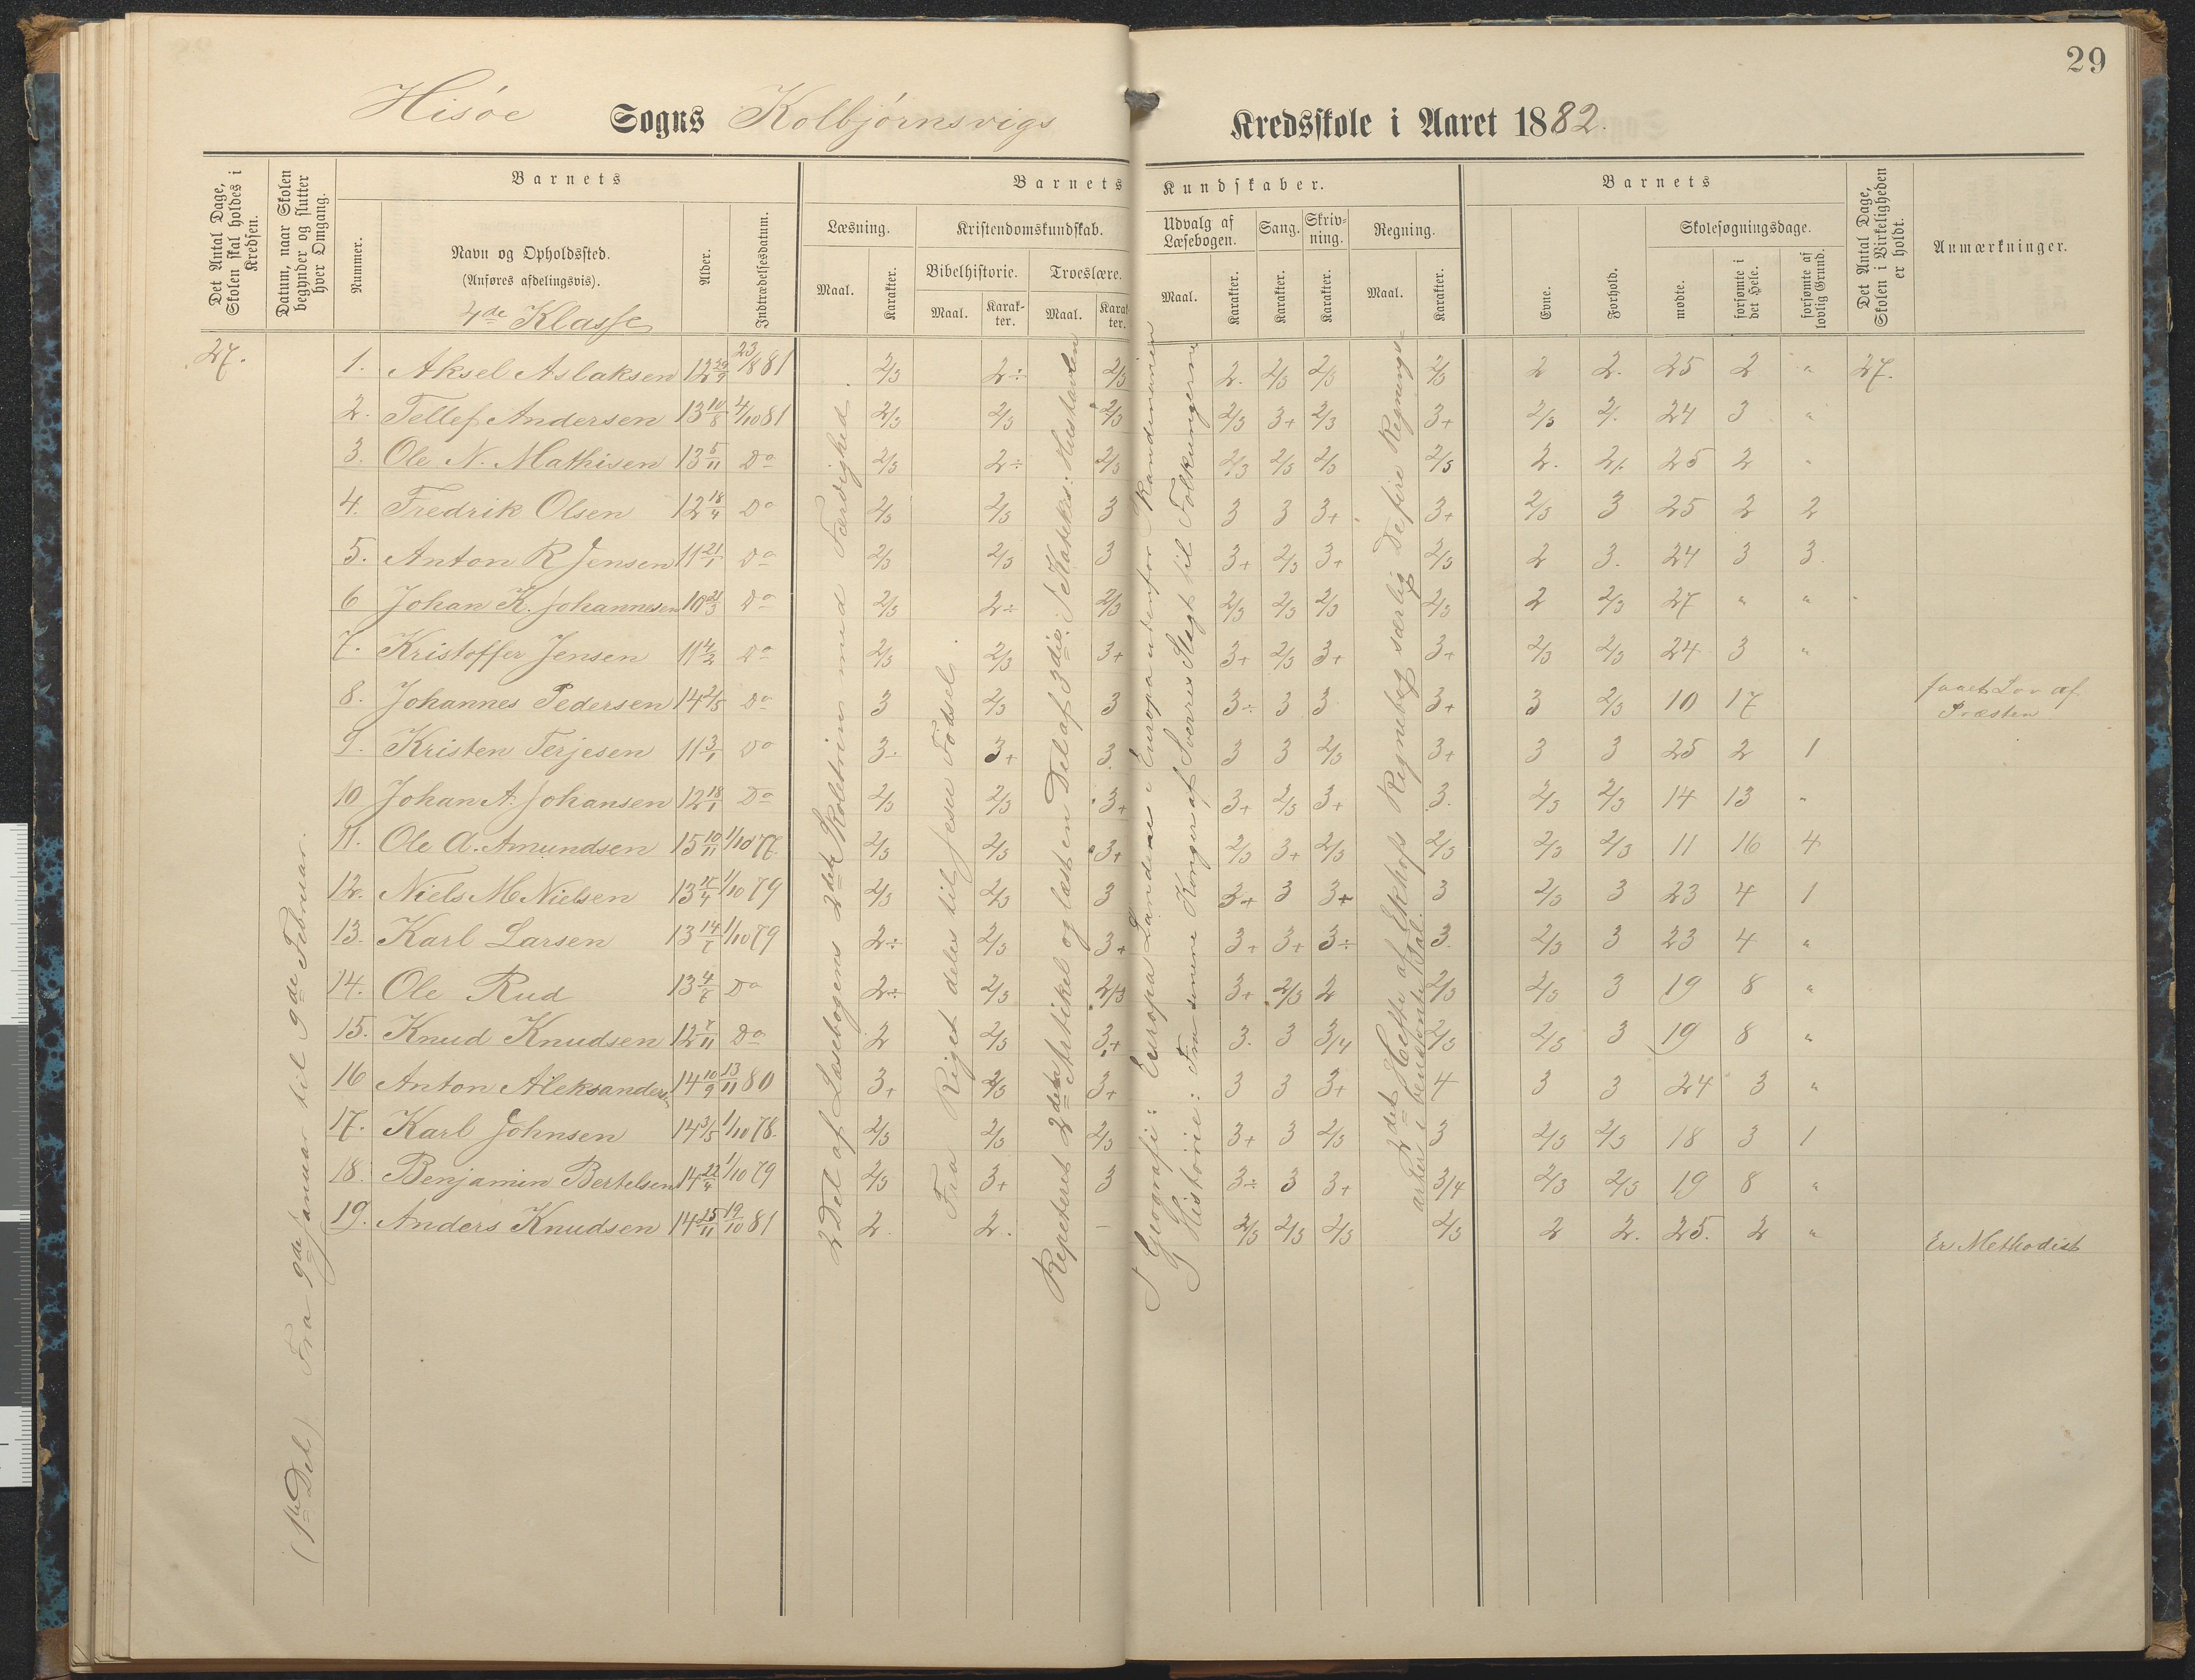 29
Hisøe Sogns Kolbjørnsvigs Kredsskole i Aaret 1882.
Det Antal Dage, Skolen skal holdes i Kredsen.
Datum, naar Skolen begynder og slutter hver Omgang.
Barnets
Nummer.
Navn og Opholdssted.
(Anføres afdelingsvis).
4de Klasse
Alder.
Indtrædelsesdatum.
Barnets Kundskaber.
Læsning.
Maal.
Karakter.
Kristendomskundskab.
Bibelhistorie.
Maal.
Karakter.
Troeslære.
Maal.
Karakter.
Udvalg af Læsebogen.
Maal.
Karakter.
Sang.
Karakter.
Skrivning.
Karakter.
Regning.
Maal.
Karakter.
Barnets
Evne.
Forhold.
Skolesøgningsdage.
mødte.
forsømte i det Hele.
forsømte af lovlig Grund.
Det Antal Dage, Skolen i Virkeligheden er holdt.
Anmærkninger.
27.
(1ste Del) Fra 9de Januar til 9de Februar.
2 Del af Læsebogens 2det Skoletrin med Færdighed.
Fra Riget deles til Jesu Fødsel
Repeteret 2den Artikel og læst en Del af 3die. Katekis: Hustavlen
Geografi: Europa Landene i Europa udenfor Skandinavien
Historie: Fra denne Konger af Sverres Slegt til Folkungerne
2det Hefte af Ekhofs Regnebog særlig De fire Regnings-
arter i benævnte Tal.
1. Aksel Aslaksen 12 29/9 23/8 81 2/3 2÷ 2/3 2. 2/3 2/3 2/3 2 2. 25 2 " 27.
2. Tellef Andersen 13 10/8 4/10 81 2/3 2/3 2/3 2/3 3+ 2/3 3+ 2/3 2. 24 3 "
3. Ole N. Mathisen 13 5/11 Do 2/3 2÷ 2/3 2/3 2/3 2/3 2/3 2. 2. 25 2 "
4. Fredrik Olsen 12 18/4 Do 2/3 2/3 3 3 3 3+ 3+ 2/3 3 25 2 2
5. Anton R Jensen 11 21/1 Do 2/3 2/3 3 3+ 2/3 3+ 2/3 2 3. 24 3 3.
6 Johan K. Johannesen 10 21/3 Do 2/3 2÷ 2/3 2/3 2/3 2/3 2/3 2 2/3 27 " "
7. Kristoffer Jensen 11 4/2 Do 2/3 2/3 3+ 3+ 2/3 3+ 3+ 2/3 2/3 24 3 "
8. Johannes Pedersen 14 2/5 Do 3 2/3 3 3÷ 3 3 3+ 3 2/3 10 17 faaet Lov af Præsten
9. Kristen Terjesen 11 3/1 Do 3÷ 3+ 3. 3 3 2/3 3+ 3 3 25 2 1
10 Johan A. Johansen 12 18/1 Do 2/3 2/3 3+ 3+ 2/3 3+ 3. 2/3 2/3 14 13 "
11. Ole A. Amundsen 15 10/11 1/10 77. 2/3 2/3 3+ 2/3 3+ 2/3 2/3 2/3 2/3 11 16 4
12. Niels M Nielsen 13 1/10 79 2/3 2/3 3 3+ 3 3+ 3 2/3 3 23 4 1
13. Karl Larsen 13 14/7 1/10 79 2÷ 2/3 3+ 3+ 3+ 3÷ 3. 2/3 3 23 4 "
14. Ole Rud 13 4/7 Do 2÷ 2/3 2/3 3+ 2/3 2 2/3 2/3 3 19 8 "
15. Knud Knudsen 12 7/11 Do 2 2/3 3+ 3. 3 3/4 2/3 2/3 3 19 8 "
16 Anton Aleksanders. 14 10/9 13/11 80 3+ 2/3 3+ 3 3 3+ 4 3 3 24 3 "
17. Karl Johnsen 14 3/5 1/10 78. 2/3 2/3 2/3 3+ 3 2/3 3 2/3 2/3 18 3 1
18. Benjamin Bertelsen 14 22/4 1/10 79 2/3 3+ 3 3÷ 3 3+ 3/4 2/3 2/3 19 8 "
19. Anders Knudsen 14 25/11 19/10 81 2 2. – 2/3 2/3 2/3 2/3 2 2. 25. 2 " Er Methodist